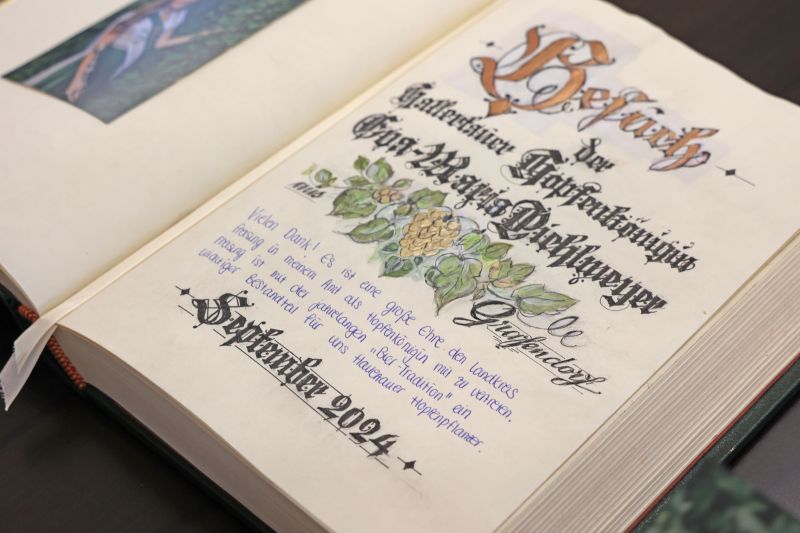 Besuch
der
Hallertauer Hopfenkönigin
Eva-Maria Pichlmeyer
aus
Grafendorf
Vielen Dank! Es ist eine große Ehre den Landkreis
Freising in meinem Amt als Hopfenkönigin mit zu vertreten.
Freising ist mit der jahrelangen „Bier-Tradition" ein
wichtiger Bestandteil für uns Hallertauer Hopfenpflanzer.
September 2024